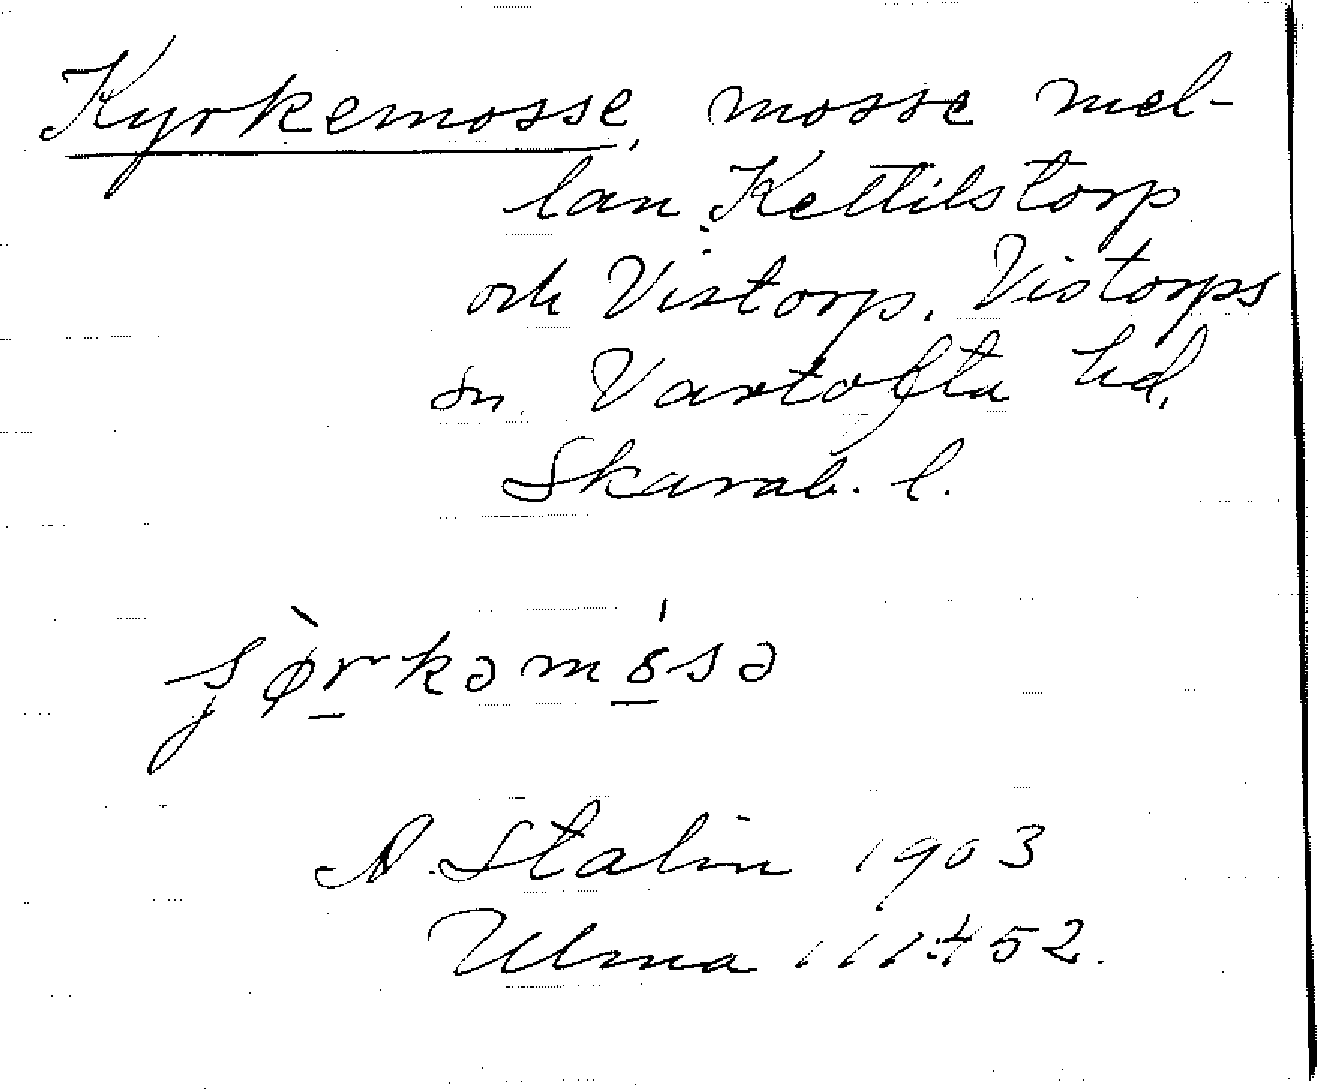 Kyrkemosse, mosse mel-
lan Kettilstorp
och Vistorp. Vistorps
sn. Vartofta hd,
Skarab. l.
A. Stalin 1903
Ulma 111:452.